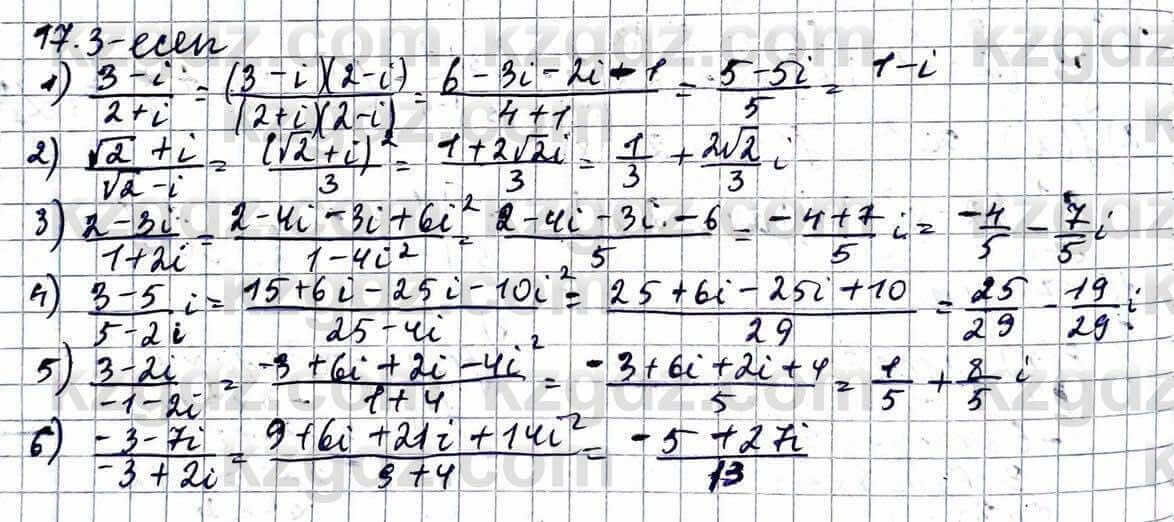 17.3-есеп
1) (3-i)/(2+i) = ((3-i)(2-i))/((2+i)(2-i)) = (6-3i-2i-1)/(4+1) = (5-5i)/5 = 1-i
2) (√2+i)/(√2-i) = (√2+i)²/3 = (1+2√2i)/3 = 1/3 + 2√2/3 i
3) (2-3i)/(1+2i) = (2-4i-3i+6i²)/(1-4i²) = (2-4i-3i-6)/5 = -(4+7)/5 i = -4/5 - 7/5 i
4) (3-5)/(5-2i) i = (15+6i-25i-10i²)/(25-4i) = (25+6i-25i+10)/29 = 25/29 - 19/29 i
5) (3-2i)/(-1-2i) = (-3+6i+2i-4i²)/(1+4) = (-3+6i+2i+4)/5 = 1/5 + 8/5 i
6) (-3-7i)/(-3+2i) = (9+6i+21i+14i²)/(9+4) = (-5+27i)/13
kzgdz.com